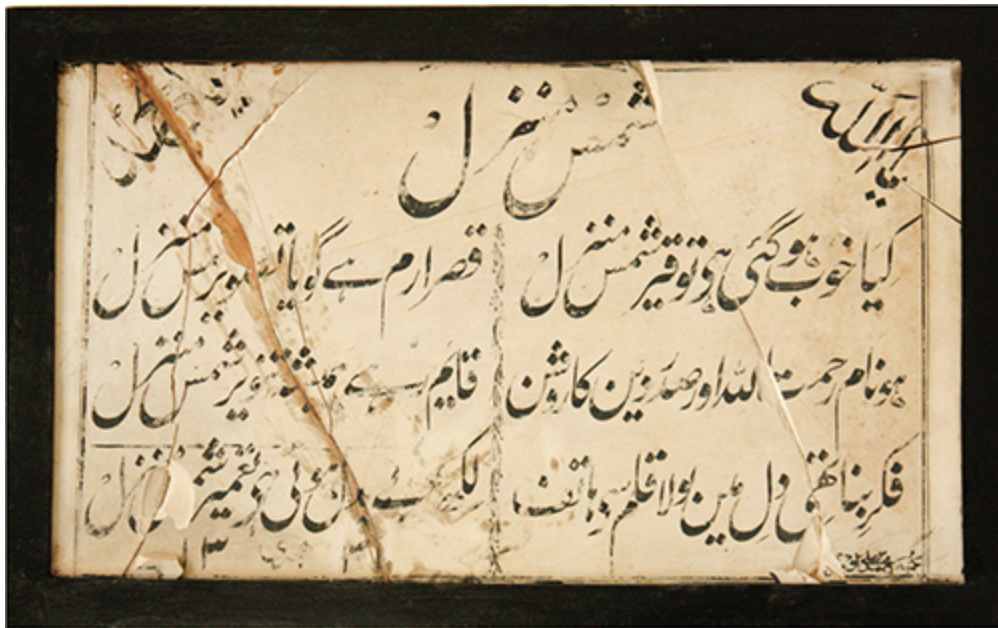 یا اللہ شمس منزل
کیا خوب ہو گئی ہی توقیر شمس منزل قصر ارم ہے گویا تصویر شمس منزل
ہو نام رحمت اللہ اور صدر دین کا روشن قایم رہے ہمیشہ تنویر شمس منزل
فکر بنا تھی دل مین بولا قلم سے ہاتف تعمیر شمس منزل